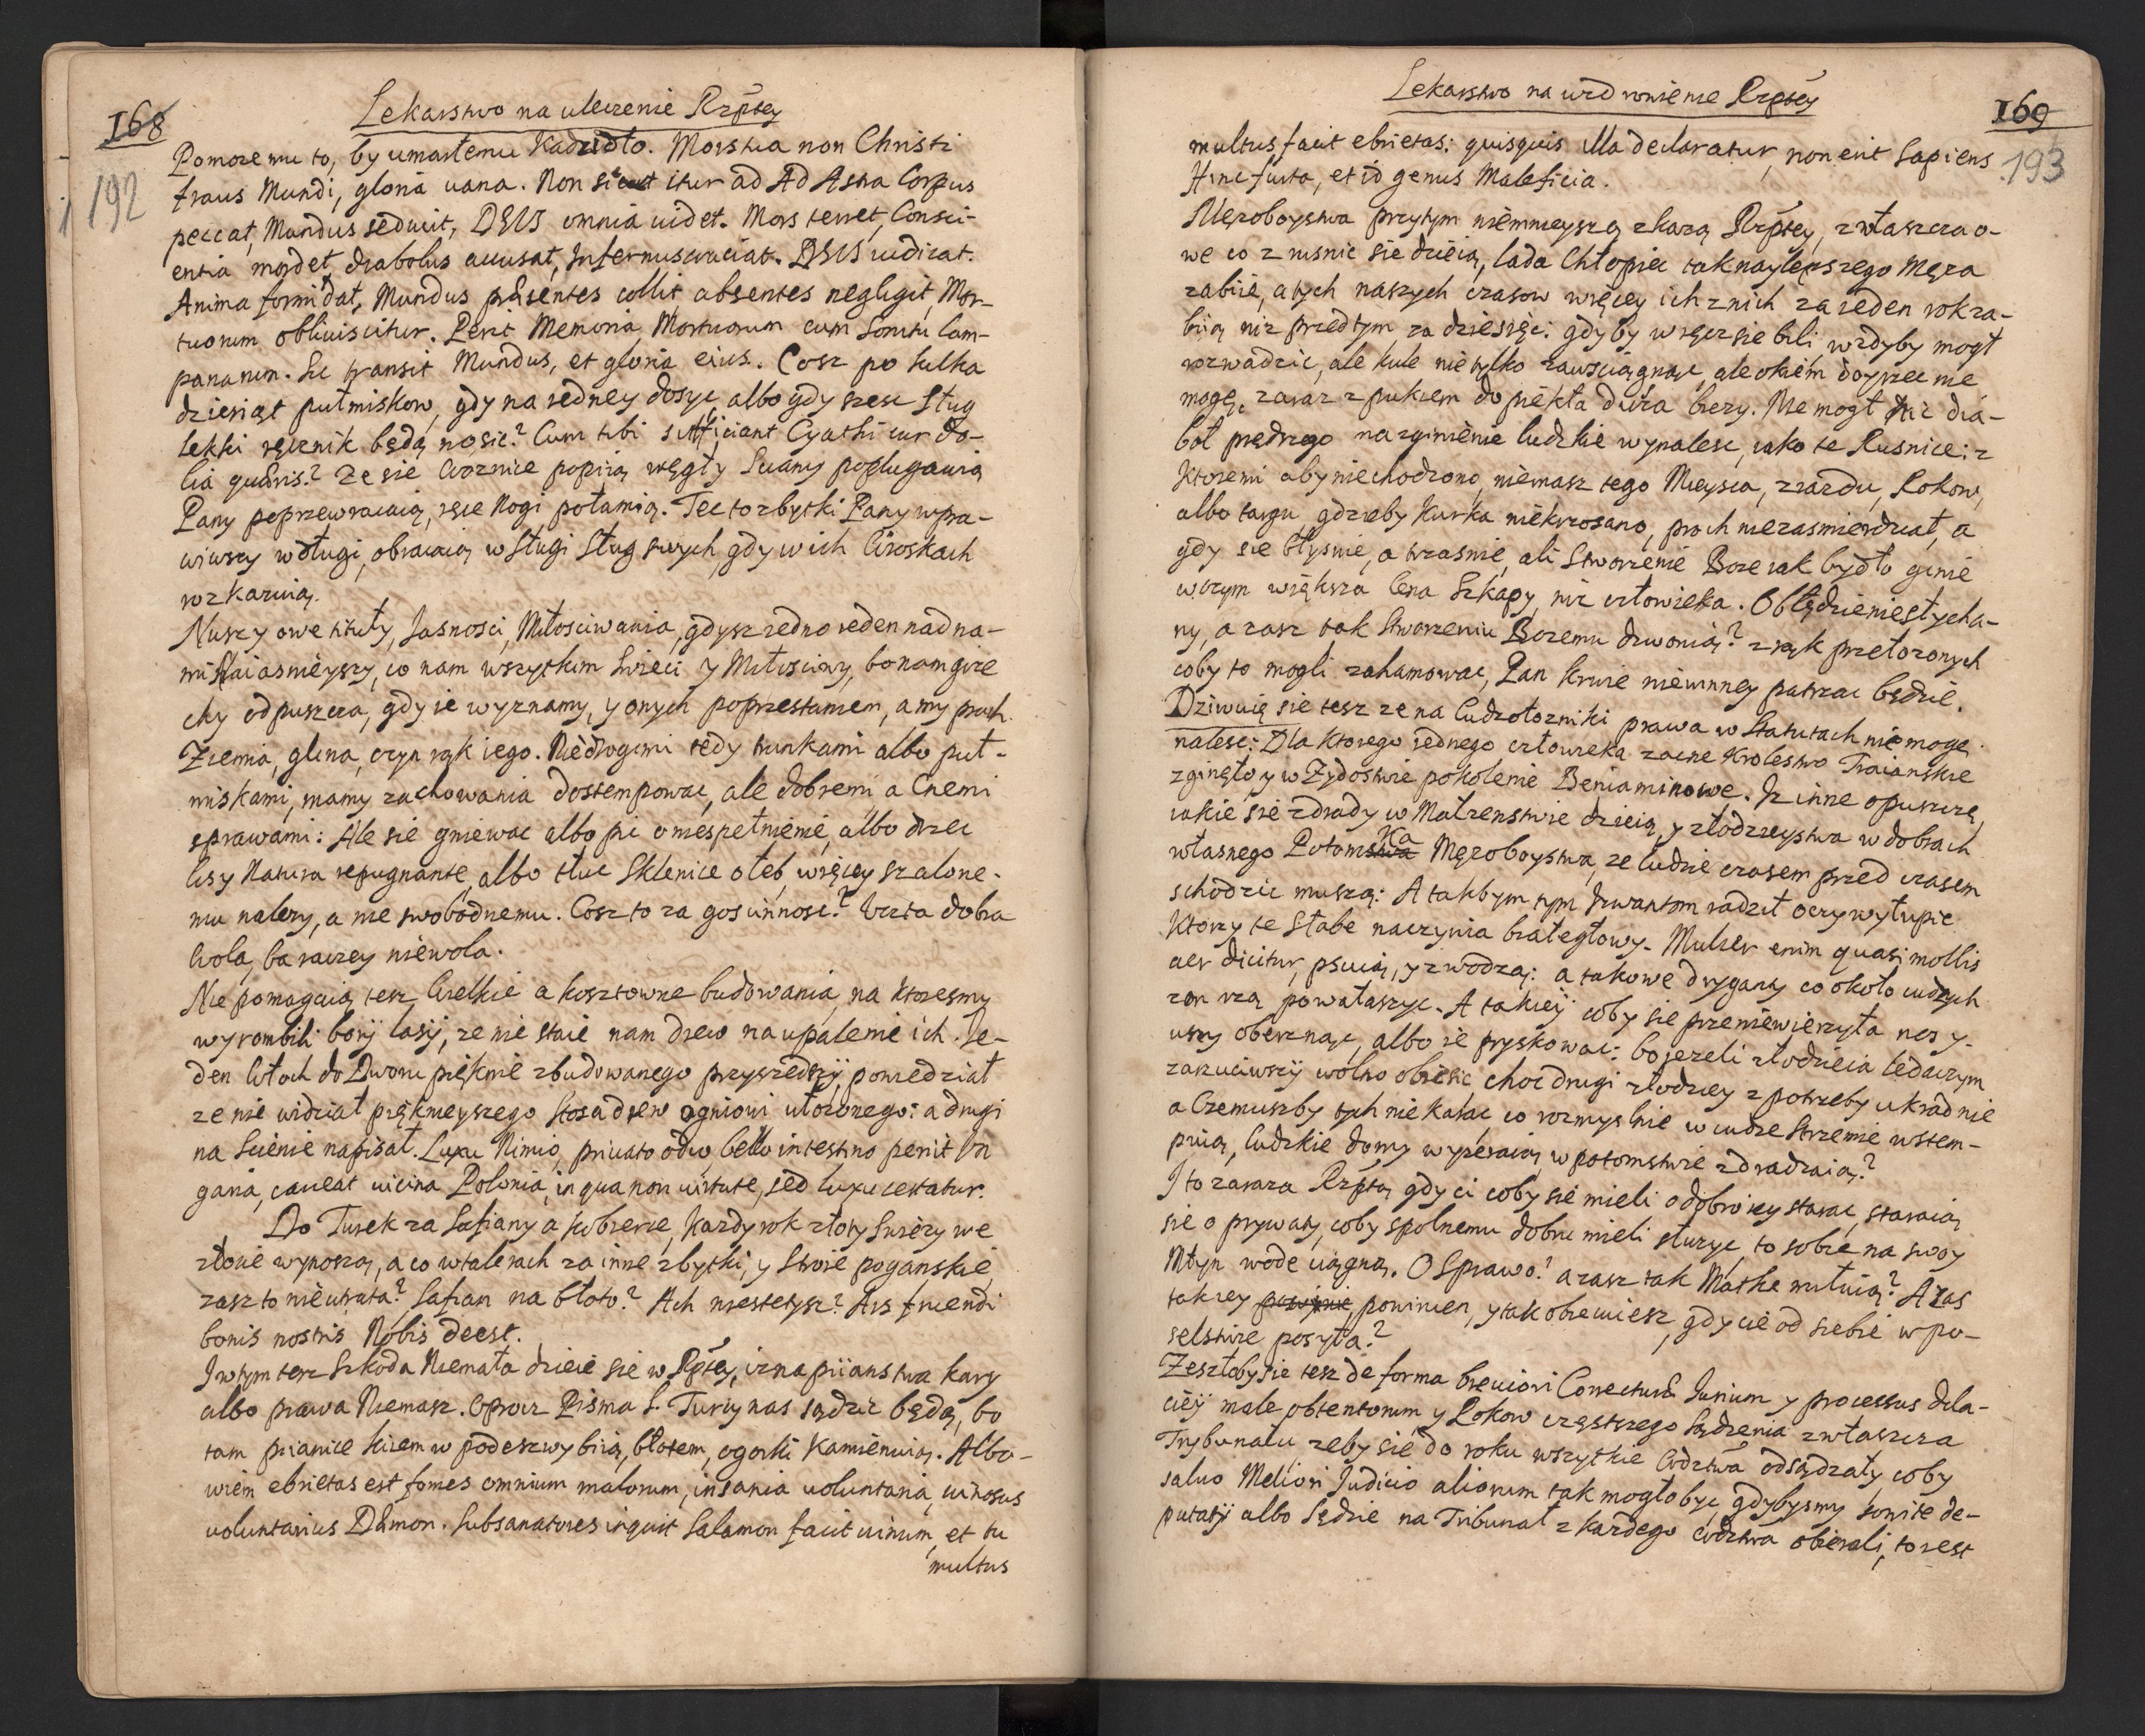 168
Lekarstwo na uleczenie Rzptey
192
Pomoze mu to, by umarłemu Kadzidło. Morstua non Christi
fraus Mundi, gloria uana. Non sicut itur ad Ad Astra Corpus
peccat, Mundus seducit, DEUS omnia uidet. Mors terret, Consci-
entia mordet, diabolus accusat, Infernus cruciat. DEUS iudicat.
Anima formidat, Mundus præsentes collit absentes negligit, Mor-
tuorum obliuiscitur. Perit Memoria Mortuorum cum Sonitu Cam-
panarum. Sic transit Mundus, et gloria eius. Cosz po kilka
dziesiąt pułmiskow, gdy na iedney dosyc albo gdy szesc Sług
lekki ręcznik będą nosic? Cum tibi sufficiant Cyathi cur do-
lia quæris? Ze sie Woznice popiią węgły Sciany poplugawią
Pany poprzewracaią, ręce Nogi połamią. Tec to zbytki Pany wpra-
wiwszy w długi, obracaią w Sługi Sług swych, gdy w ich Wioskach
rozkazuią.
Nuszy owe tituły, Jasnosci, Miłosciwania, gdysz iedno ieden nad na-
mi Naiasnieyszy, co nam wszytkim Swieci y Miłosciwy, bo nam grze
chy odpuszcza, gdy ie wyznamy, y onych poprzestaniem, a my proch.
Ziemia, glina, czyn rąk iego. Niedrogimi tedy trunkami albo puł-
miskami, mamy zachowania dostempowac, ale dobremi, a Cnemi
sprawami: Ale sie gniewac albo pic o niespełnienie, albo drzec
lisy Natura repugnante, albo tłuc Sklenice o łeb, więcey szalone-
mu nalezy, a nie swobodnemu. Cosz to za goscinnosc? Uczta dobra
Wola, ba raczey niewola.
Nie pomagaią tesz Wielkie a kosztowne budowania, na ktoresmy
wyrombili bory lasÿ, ze nie staie nam drew na upalenie ich. Je-
den Włoch do Dworu pięknie zbudowanego przyszedszÿ, powiedział
ze nie widział piękneyszego Stosa drew ogniowi ułozonego: a drugi
na Scienie napisał. Luxu Nimio, priuato odio, bello intestino periit Vn
garia, caueat uicina Polonia, in qua non uirtute, sed luxu certatur.
Do Turek za Safiany a kobierce, kazdy rok złoty Swiezy we
złocie wynoszą, a co w talerach za inne zbytki, y Stroie poganskie,
zasz to nieutrata? Safian na błoto? Ach niestetysz? Ars fruendi
bonis nostris Nobis deest.
I w tym tesz Szkoda Niemała dzieie sie w Rptey, iz na piianstwa kary
albo prawa Niemasz. Oprocz Pisma S. Turcy nas sądzic będą, bo
tam pianice kiiem w podeszwy biią, błotem, ogorki Kamieniuią. Albo-
wiem ebrietas est fomes omnium malorum, insania uoluntaria, uinosus
uoluntarius Dæmon. Subsanatores inquit Salamon facit uinum, et tu
multus
Lekarstwo na uzdrowienie Rzptey
169
193
multus facit ebrietas: quisquis illa declaratur, non erit Sapiens
Hinc furta, et id genus Maleficia.
Męzoboystwa przytym niemnieyszą zkazą Rzptey, zwłaszcza o-
we co z rusnic sie dzieią, lada Chłopiec tak naylepszego Męza
zabiie, a tych naszych czasow więcey ich z nich za ieden rok za-
biią niz przedtym za dziesięc: gdyby wręcz sie bili wzdyby mogł
rozwadzic, ale kule nie tylko zawsciągnąc, ale okiem doyrzec nie
mogę, zaraz z pukiem do piekła dusza biezy. Nie mogł nic dia-
boł prędszego na zginienie ludzkie wynalesc, iako te Rusnice: z
Ktoremi aby niechodzono, niemasz tego Mieysca, ziazdu, Rokow,
albo targu, gdzieby Kurka niekrzosano, proch niezasmierdział, a
gdy sie błysnie, a trzasnie, ali Stworzenie Boze iak bydło ginie
w czym większa Cena Szkapy, niz człowieka. Obłędzienie słycha-
ny, a zasz tak Stworzeniu Bozemu dzwonią? z rąk przełozonych
coby to mogli zahamowac, Pan krwie niewinney patrzac będzie.
Dziwuię sie tesz ze na Cudzołozniki prawa w Statutach nie mogę
nalesc: Dla ktorego iednego człowieka zacne Krolestwo Traianskie
zginęło y w Zydostwie pokolenie Beniaminowe. Iz inne opuszczę,
iakie sie zdrady w Małzenstwie dzieią, y złodzieystwa w dobrach
własnego Potomka Męzoboystwa, ze ludzie czasem przed czasem
schodzic muszą: A takbym tym frwantom radził oczy wyłupic
Ktorzy te Słabe naczynia białegłowy. Mulier enim quasi mollis
aer dicitur, psuią, y zwodzą: a takowe drygany co około cudzych
zon rzą powałaszyc. A takiey coby sie przeniewierzyła nos y
uszy oberznąc, albo ie pryskowac: bo jezeli złodzieia ledaczym
zarzuciwszÿ wolno obiesic, choc drugi złodziey z potrzeby ukradnie
a Czemuszby tych nie karac, co rozmyslnie w cudze Strzemie wstem-
puią, ludzkie domy wypieraią, w potomstwie zdradzaią?
I to zaraza Rzptą, gdy ci coby sie mieli o dobro iey starac, staraią
sie o prywaty, coby spolnemu dobru mieli słuzyc, to sobie na swoy
Młyn wode ciągną. O Sprawo? a zasz tak Matke miłuią? A zas
tak iey powinien, y tak obiecuiesz, gdy cie od siebie w po-
selstwie posyła?
Zeszłoby sie tesz de forma breuiori Correcturæ Jurium y processus dila-
cÿÿ male obtentorum, y Rokow częstszego Sądzenia zwłaszcza
Trybunału zeby sie do roku wszytkie Wdztwa odsądzały, coby
saluo Meliori Judicio aliorum tak mogło byc, gdybysmy sowite de-
putatÿ albo Sędzie na Tribunał z kazdego Wdztwa obierali, to iest